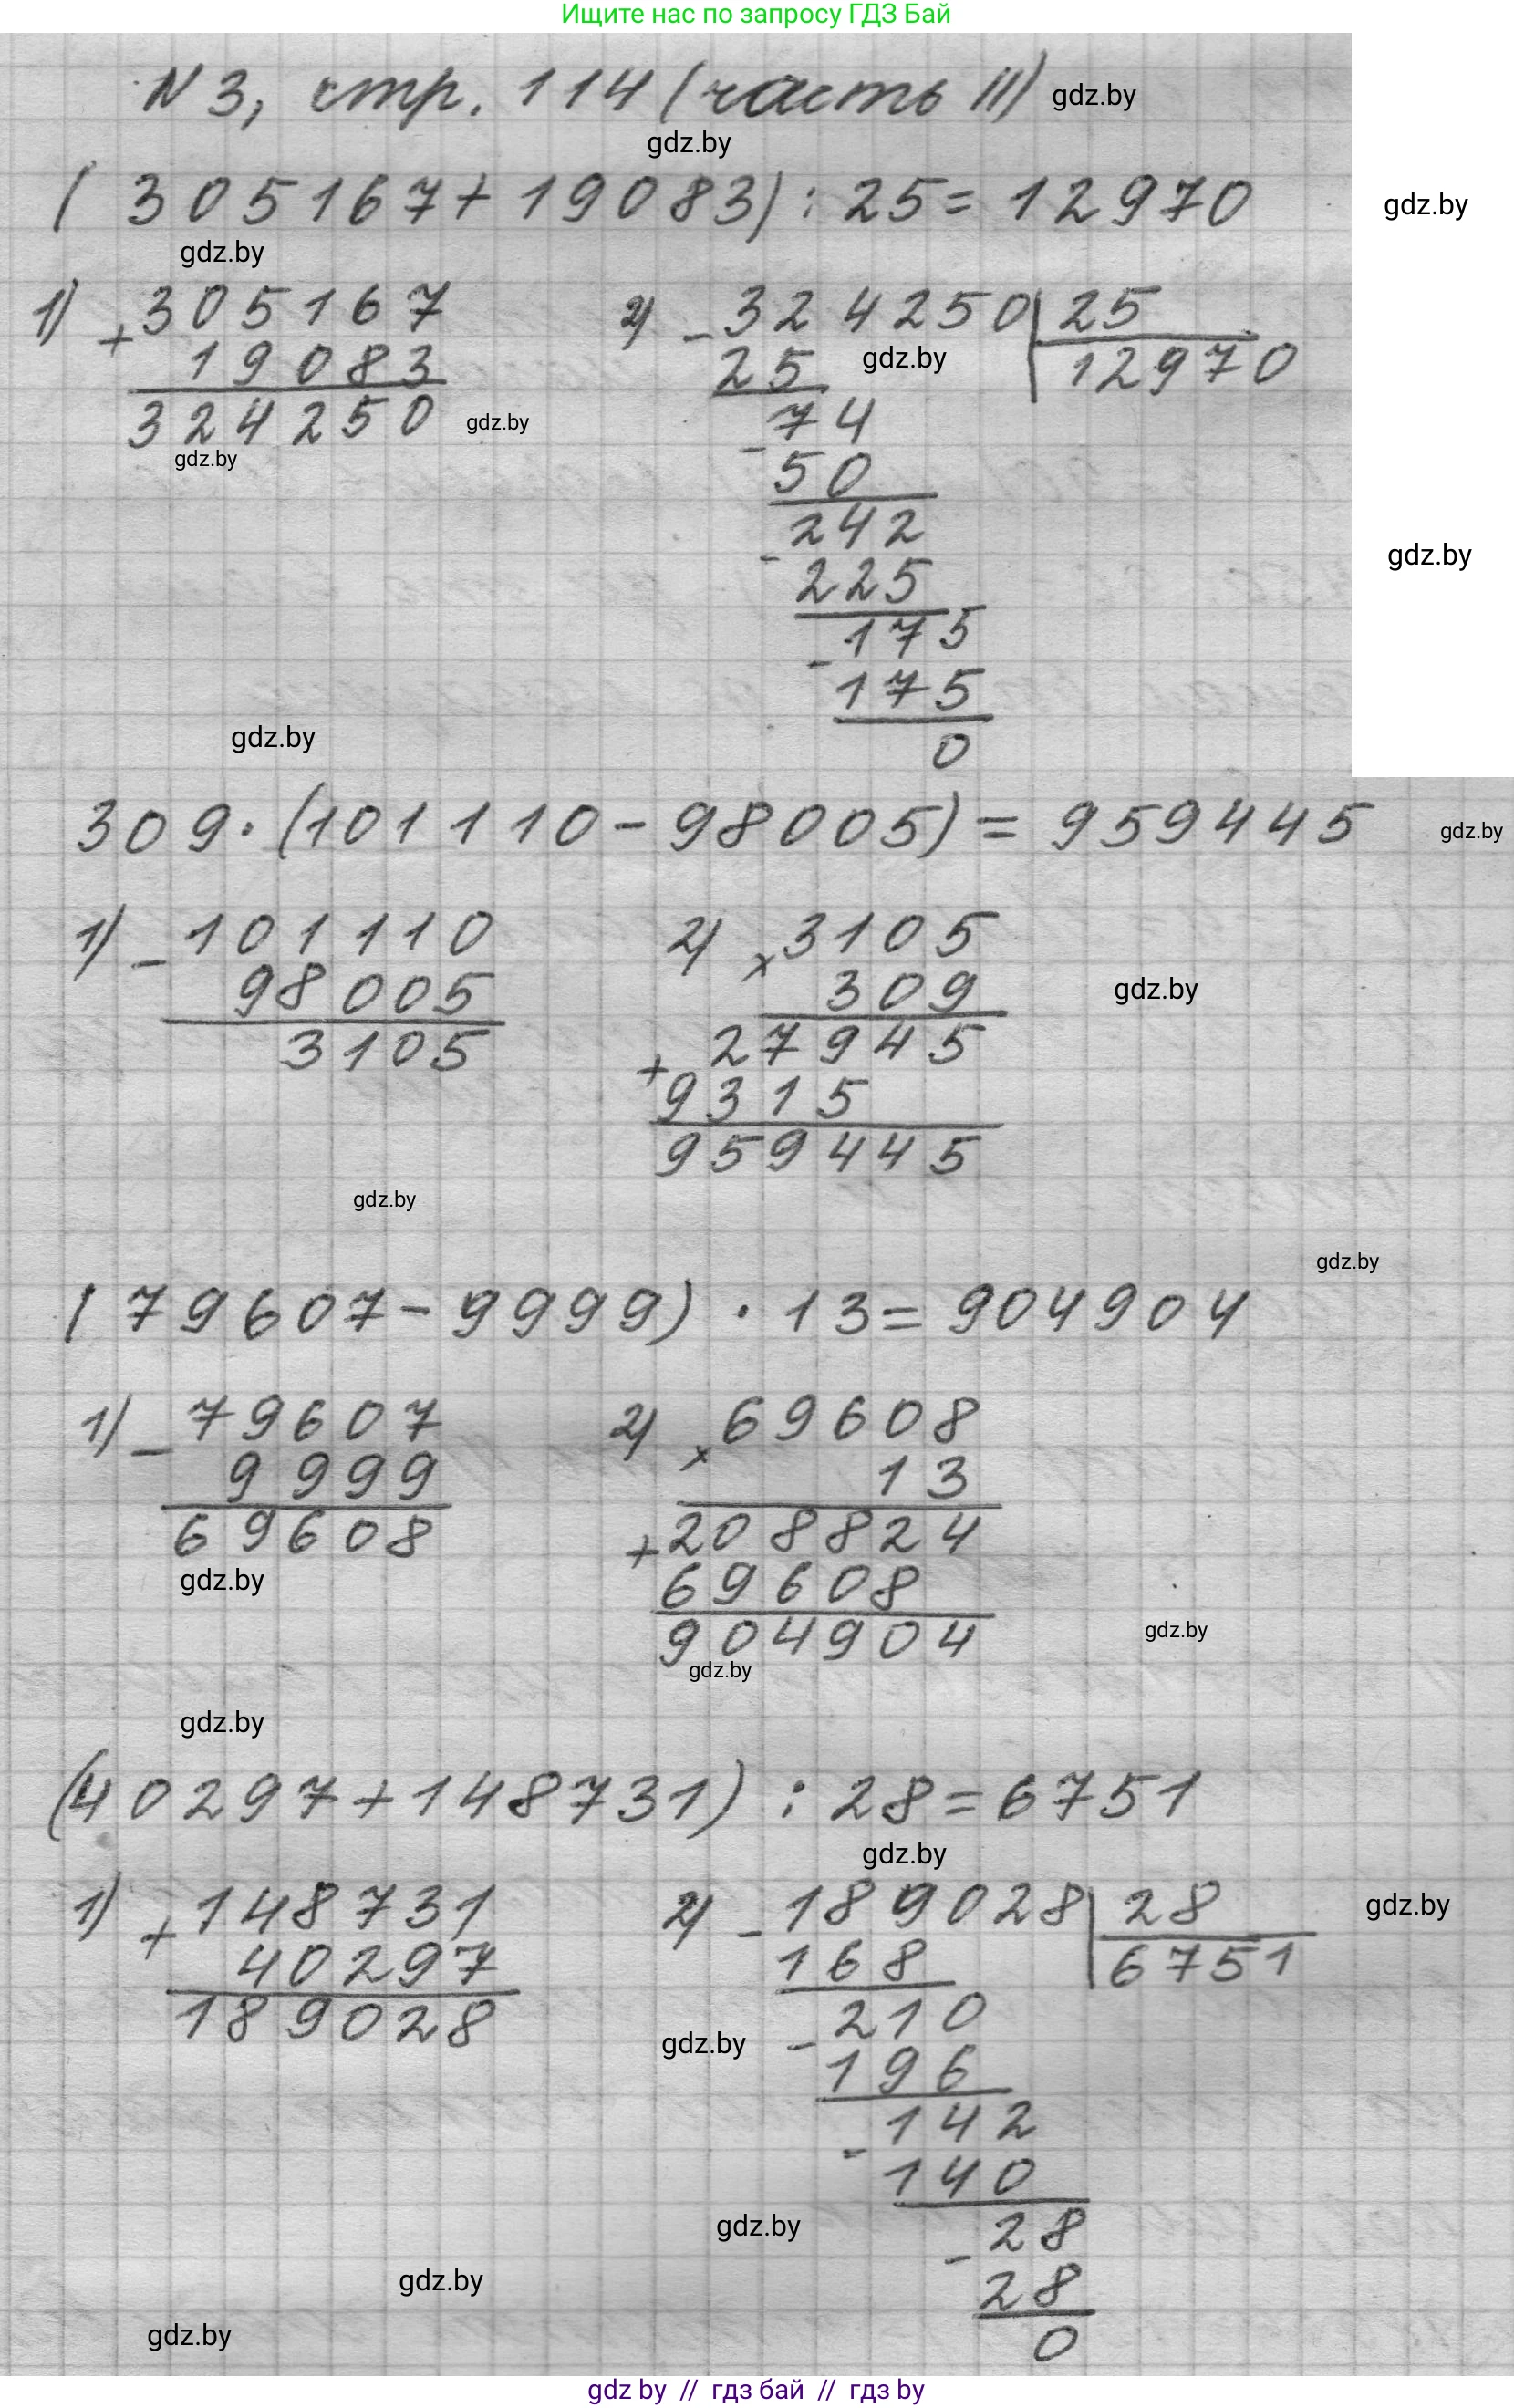 Ищите нас по запросу ГДЗ Бай
N 3, стр. 114 (часть II) gdz.by
gdz.by
(305167+19083):25=12970 gdz.by
gdz.by
1) +305167
19083
324250 gdz.by
gdz.by
2) -324250 25
25 gdz.by 12970
-74
50
-242
225 gdz.by
-175
175
0
gdz.by
309·(101110-98005)=959445 gdz.by
1) -101110
98005
3105
2) ×3105
309 gdz.by
+27945
9315
959445
gdz.by
gdz.by
(79607-9999)·13=904904
1) -79607
9999
69608
gdz.by
2) ×69608
13
+208824
69608
904904 gdz.by
gdz.by
gdz.by
(40297+148731):28=6751
gdz.by
1) +148731
40297
189028
2) -189028 28 gdz.by
168 6751
gdz.by -210
196
-142
140
gdz.by -28
gdz.by 28
gdz.by 0
gdz by // гдз бай // гдз by